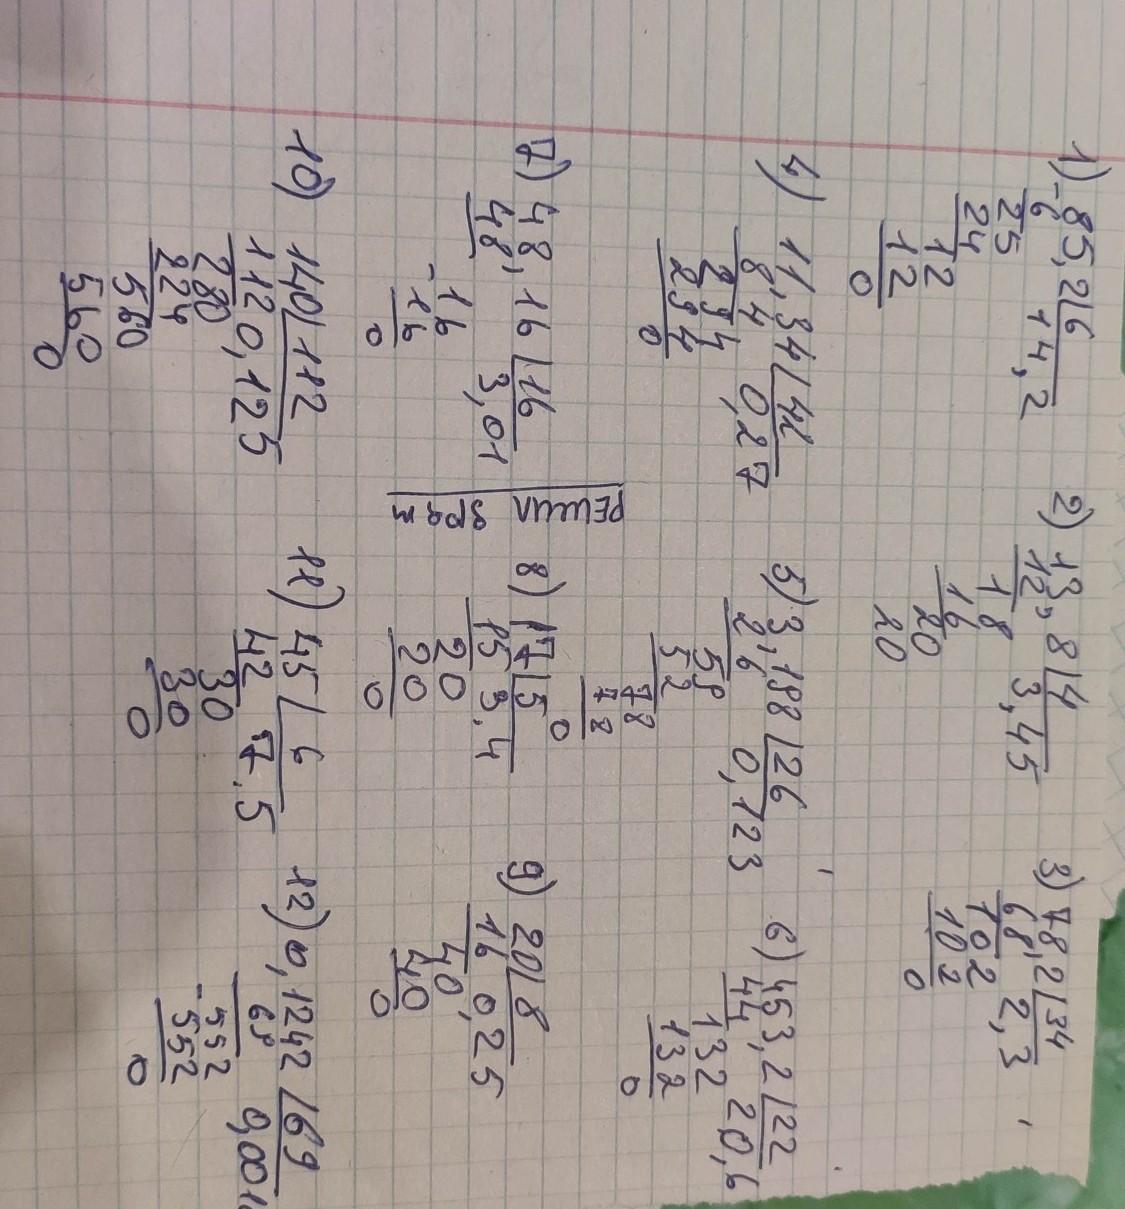 1) 85,2 6
- 6 14,2
25
24
12
12
0
2) 13,8 4
12 3,45
18
16
20
20
3) 78,2 34
68 2,3
102
102
0
4) 11,34 42
8,4 0,27
294
294
0
5) 3,198 26
2,6 0,123
59
52
78
78
0
6) 453,2 22
44 20,6
132
132
0
7) 48,16 16
48 3,01
- 16
16
0
8) 17 5
15 3.4
20
20
0
9) 20 8
16 0,25
40
40
0
10) 140 112
112 0,125
280
224
560
560
0
11) 45 6
42 7.5
30
30
0
12) 0,1242 69
69 0,001
- 552
552
0